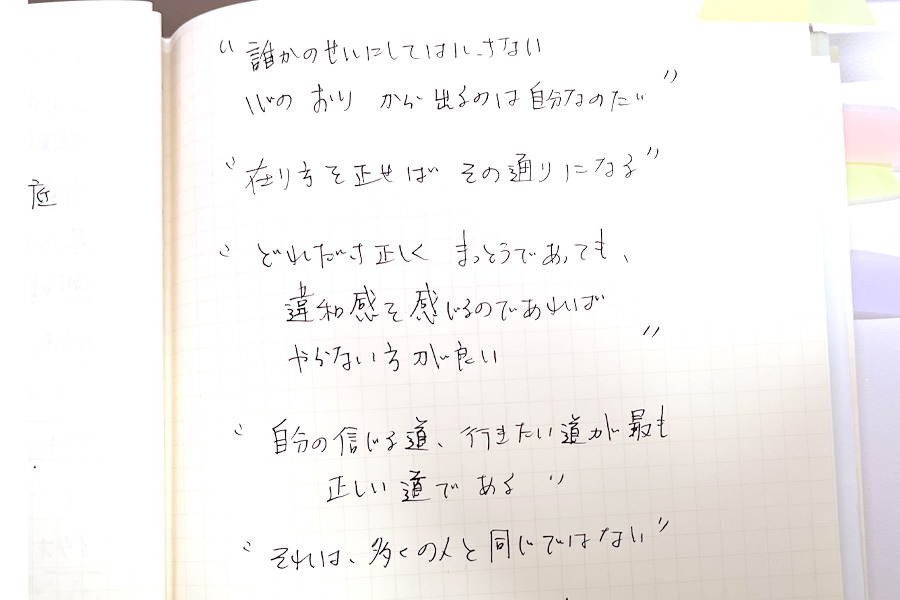 底
“誰かのせいにしてはいけない
心の おり から 出るのは自分なのだ”
“在り方を正せば その通りになる”
“どれだけ正しく まっとうであっても、
違和感を感じるのであれば
やらない方が良い ”
“自分の信じる道、行きたい道が最も
正しい道である ”
“それは、多くの人と同じではない”